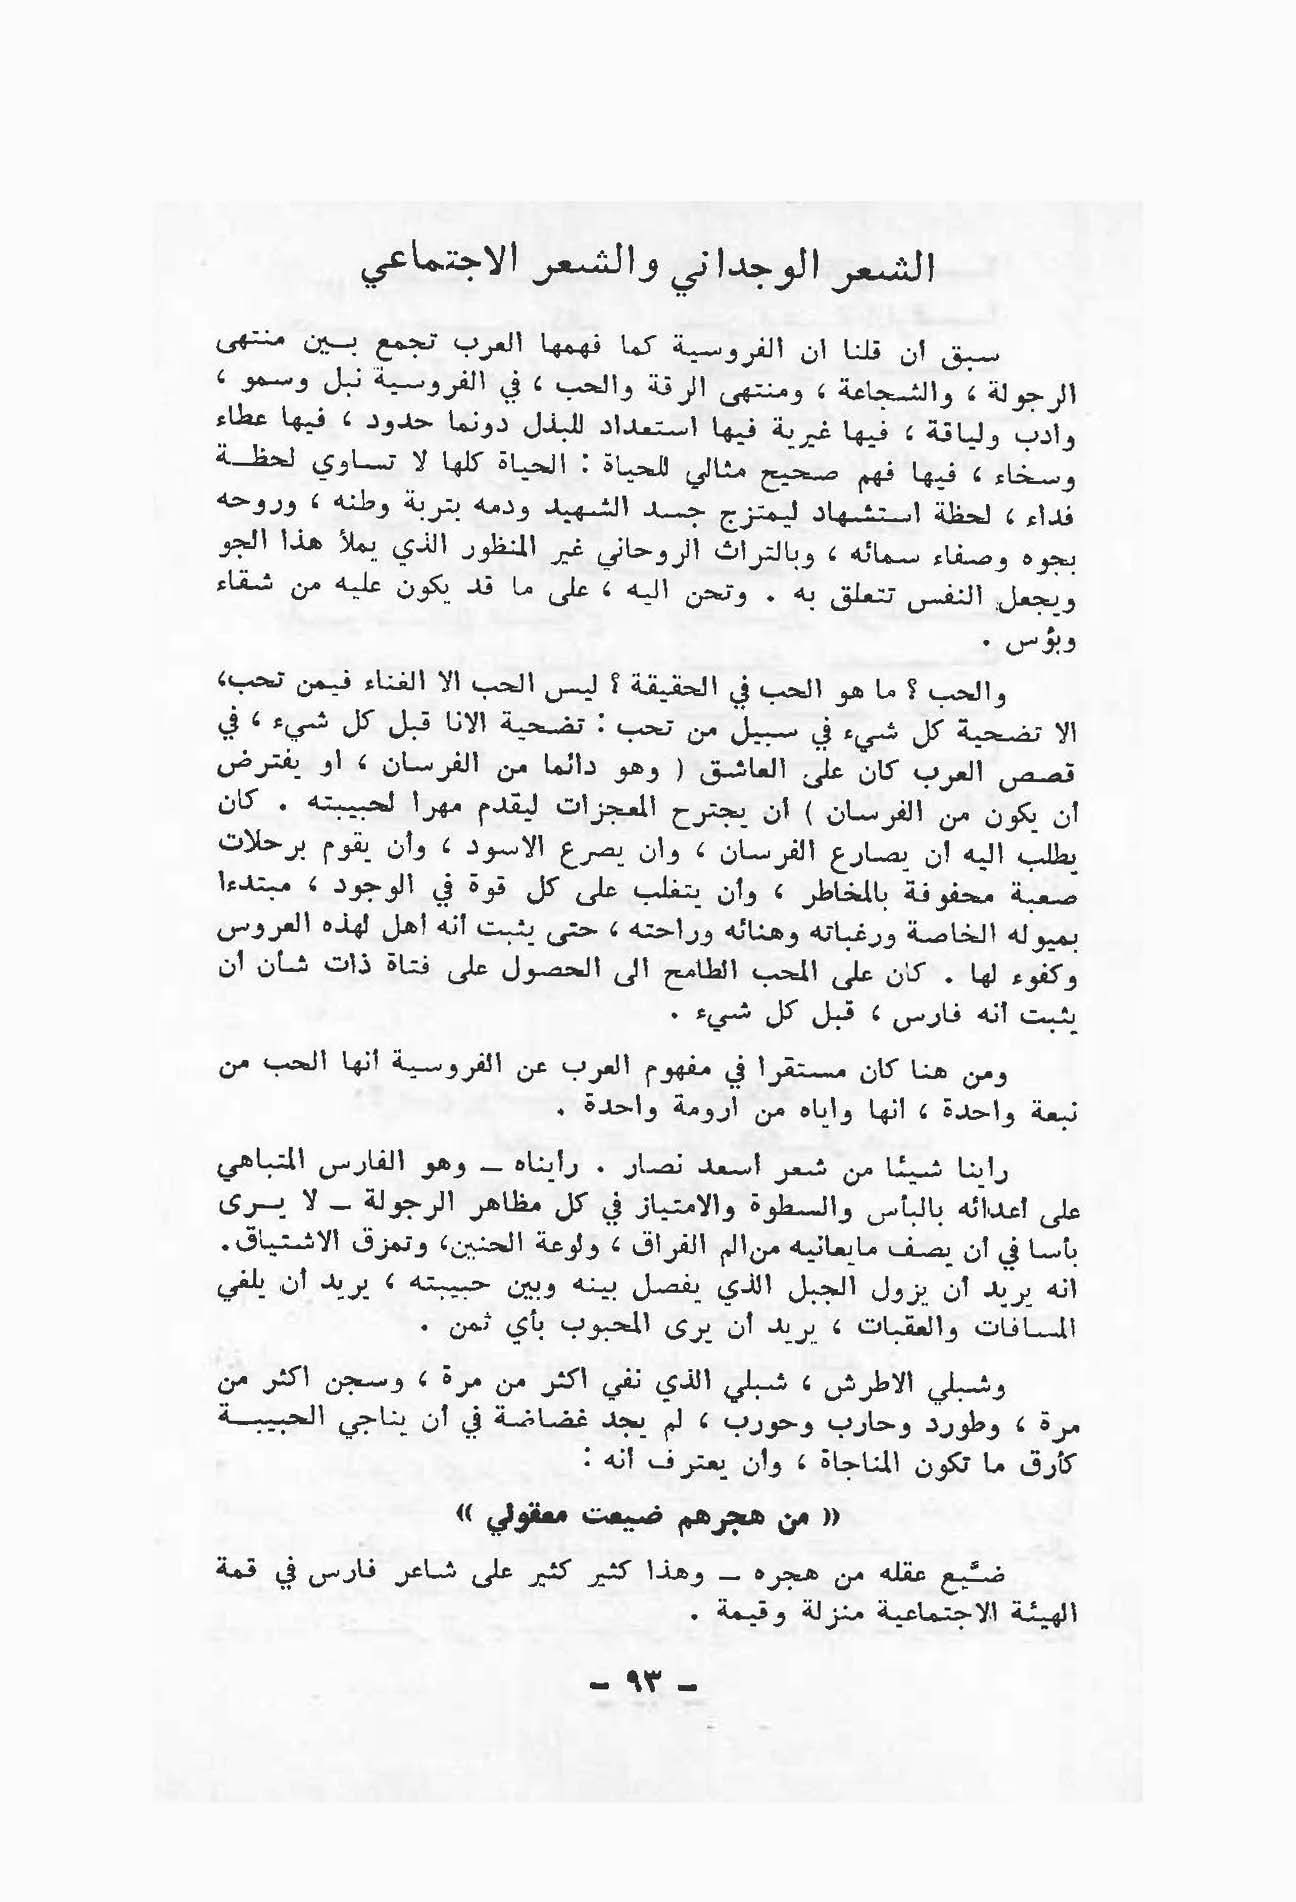 الشعر الوجداني والشعر الاجتماعي
سبق ان قلنا ان الفروسية كما فهمها العرب تجمع بين منتهى
الرجولة ، والشجاعة ، ومنتهى الرقة والحب ، في الفروسية نبل وسمو ،
وادب ولياقة ، فيها غيرية فيها استعداد للبذل دونما حدود ، فيها عطاء
وسخاء ، فيها فهم صحيح مثالي للحياة : الحياة كلها لا تساوي لحظة
فداء ، لحظة استشهاد ليمتزج جسد الشهيد ودمه بتربة وطنه ، وروحه
بجوه وصفاء سمائه ، وبالتراث الروحاني غير المنظور الذي يملأ هذا الجو
ويجعل النفس تتعلق به . وتحن اليه ، على ما قد يكون عليه من شقاء
وبؤس .
والحب ؟ ما هو الحب في الحقيقة ؟ ليس الحب الا الفناء فيمن تحب،
الا تضحية كل شيء في سبيل من تحب : تضحية الانا قبل كل شيء ، في
قصص العرب كان على العاشق ( وهو دائما من الفرسان ، او يفترض
أن يكون من الفرسان ) أن يجترح المعجزات ليقدم مهرا لحبيبته . كان
يطلب اليه أن يصارع الفرسان ، وان يصرع الاسود ، وأن يقوم برحلات
صعبة محفوفة بالمخاطر ، وأن يتغلب على كل قوة في الوجود ، مبتدءا
بميوله الخاصة ورغباته وهنائه وراحته ، حتى يثبت أنه أهل لهذه العروس
وكفوء لها . كان على المحب الطامح الى الحصول على فتاة ذات شأن أن
يثبت أنه فارس ، قبل كل شيء .
ومن هنا كان مستقرا في مفهوم العرب عن الفروسية أنها الحب من
نبعة واحدة ، انها واياه من ارومة واحدة .
راينا شيئا من شعر اسعد نصار . رأيناه – وهو الفارس المتباهي
على أعدائه بالبأس والسطوة والامتياز في كل مظاهر الرجولة – لا يرى
بأسا في أن يصف مايعانيه من الم الفراق ، ولوعة الحنين، وتمزق الاشتياق.
انه يريد أن يزول الجبل الذي يفصل بينه وبين حبيبته ، يريد أن يلغي
المسافات والعقبات ، يريد أن يرى المحبوب بأي ثمن .
وشبلي الاطرش ، شبلي الذي نفي اكثر من مرة ، وسجن اكثر من
مرة ، وطورد وحارب وحورب ، لم يجد غضاضة في أن يناجي الحبيبة
كأرق ما تكون المناجاة ، وأن يعترف أنه :
« من هجرهم ضيعت معقولي »
ضيَّع عقله من هجره – وهذا كثير كثير على شاعر فارس في قمة
الهيئة الاجتماعية منزلة وقيمة .
– ٩٣ –